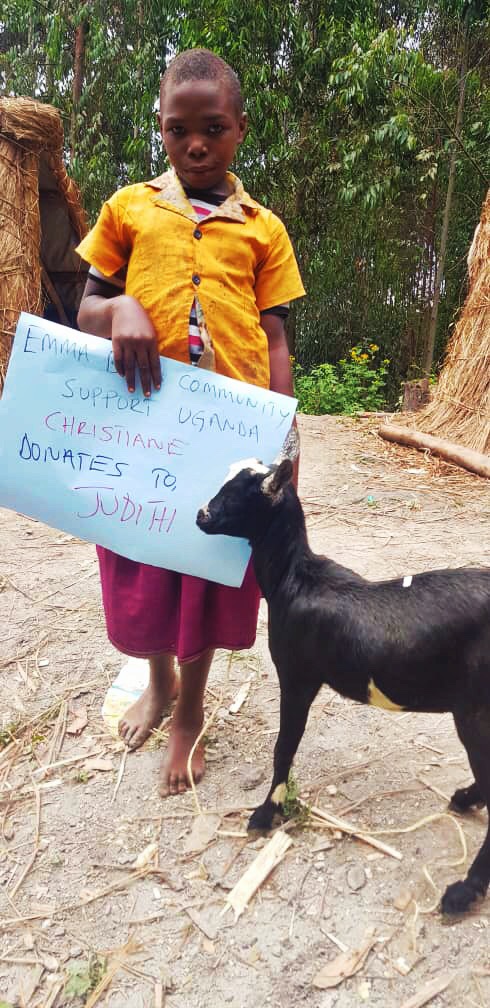 EMMA COMMUNITY
SUPPORT UGANDA
CHRISTIANE
DONATES TO,
JUDITH